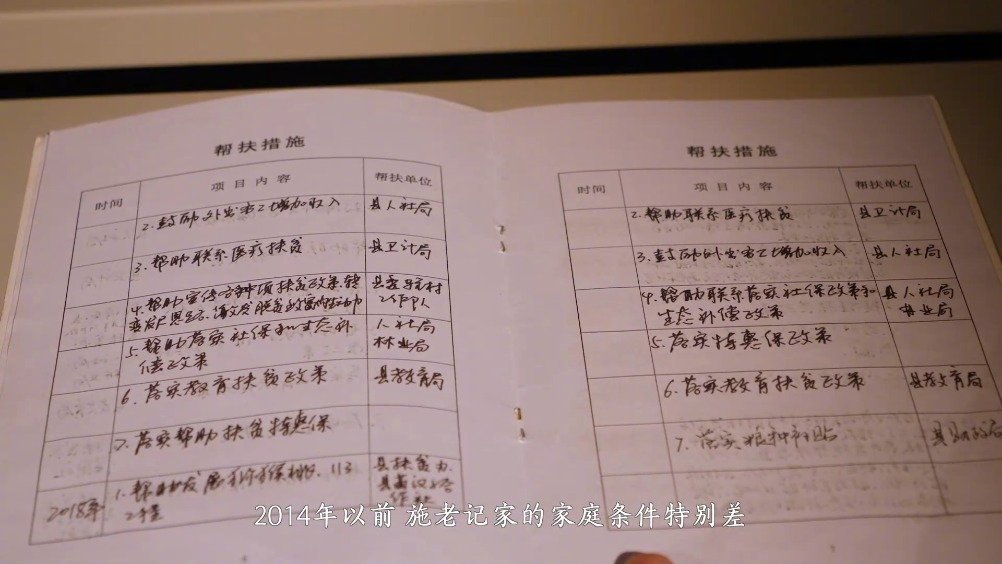 帮扶措施
时间 项目内容 帮扶单位
2.鼓励外出务工增加收入 县人社局
3.帮助联系医疗扶贫 县卫计局
4.帮助宣传各种项扶贫政策,转
变 思 脱贫致富内生动
5.帮助落实社保和生态补 人社局
偿政策 林业局
6.落实教育扶贫政策 县教育局
7.落实帮助扶贫特惠保
2018年 1.帮助发展猕猴桃 113 县扶贫办
县 合
作社
帮扶措施
时间 项目内容 帮扶单位
2.帮助联系医疗扶贫 县卫计局
3.鼓励外出务工增加收入 县人社局
4.帮助联系落实社保政策和 县人社局
生态补偿政策 林业局
5.落实特惠保政策
6.落实教育扶贫政策 县教育局
7.落实粮种补贴 县财政局
2014年以前 施老记家的家庭条件特别差